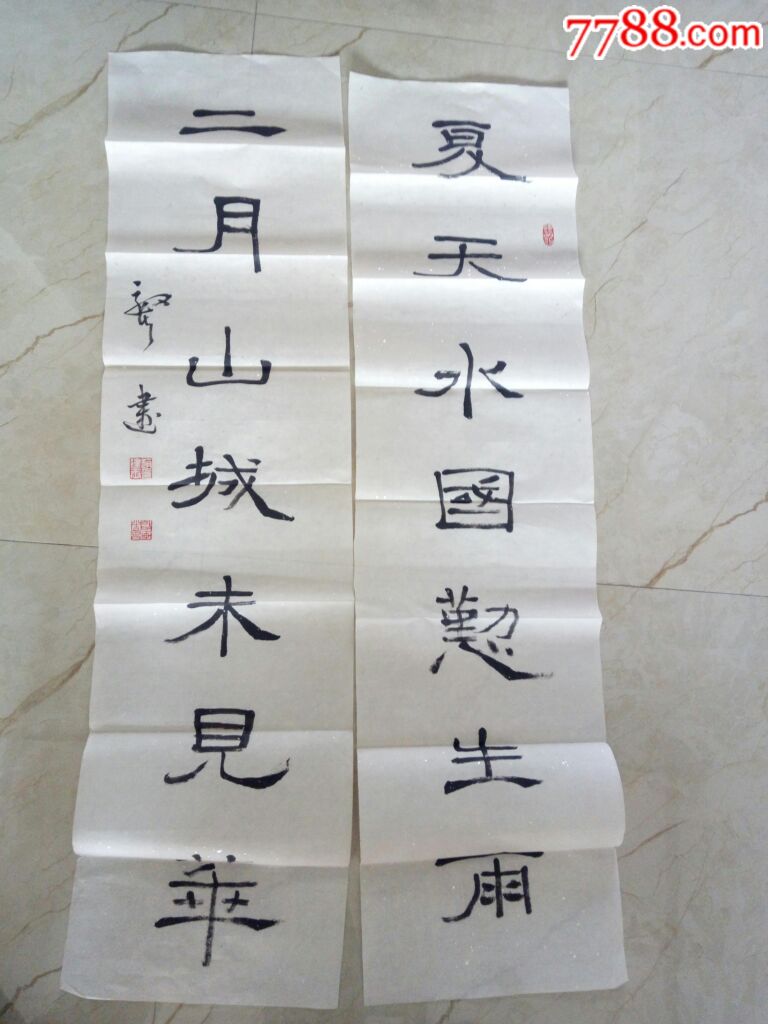 7788.com
夏天水國懃生雨
二月山城未見華
書